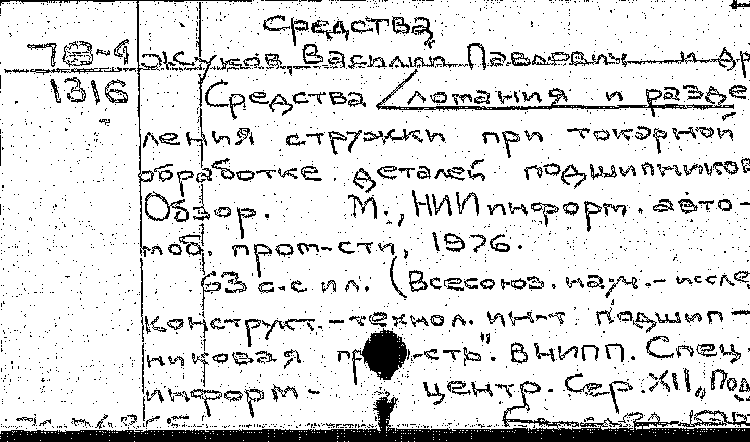 Средства
78-4 Жуков, Василий Павлович и др
1316 Средства ломания и разде
ления стружки при токарной
обработке деталей подшипников
Обзор. М., НИИинформ. авто-
моб. пром-сти, 1976.
63 с.с ил. (Всесоюз. науч.-иссле
конструкт.-технол. ин-т подшип-
никовая -сть". ВНИПП. Спец.
информ- центр. Сер. XII, „Под